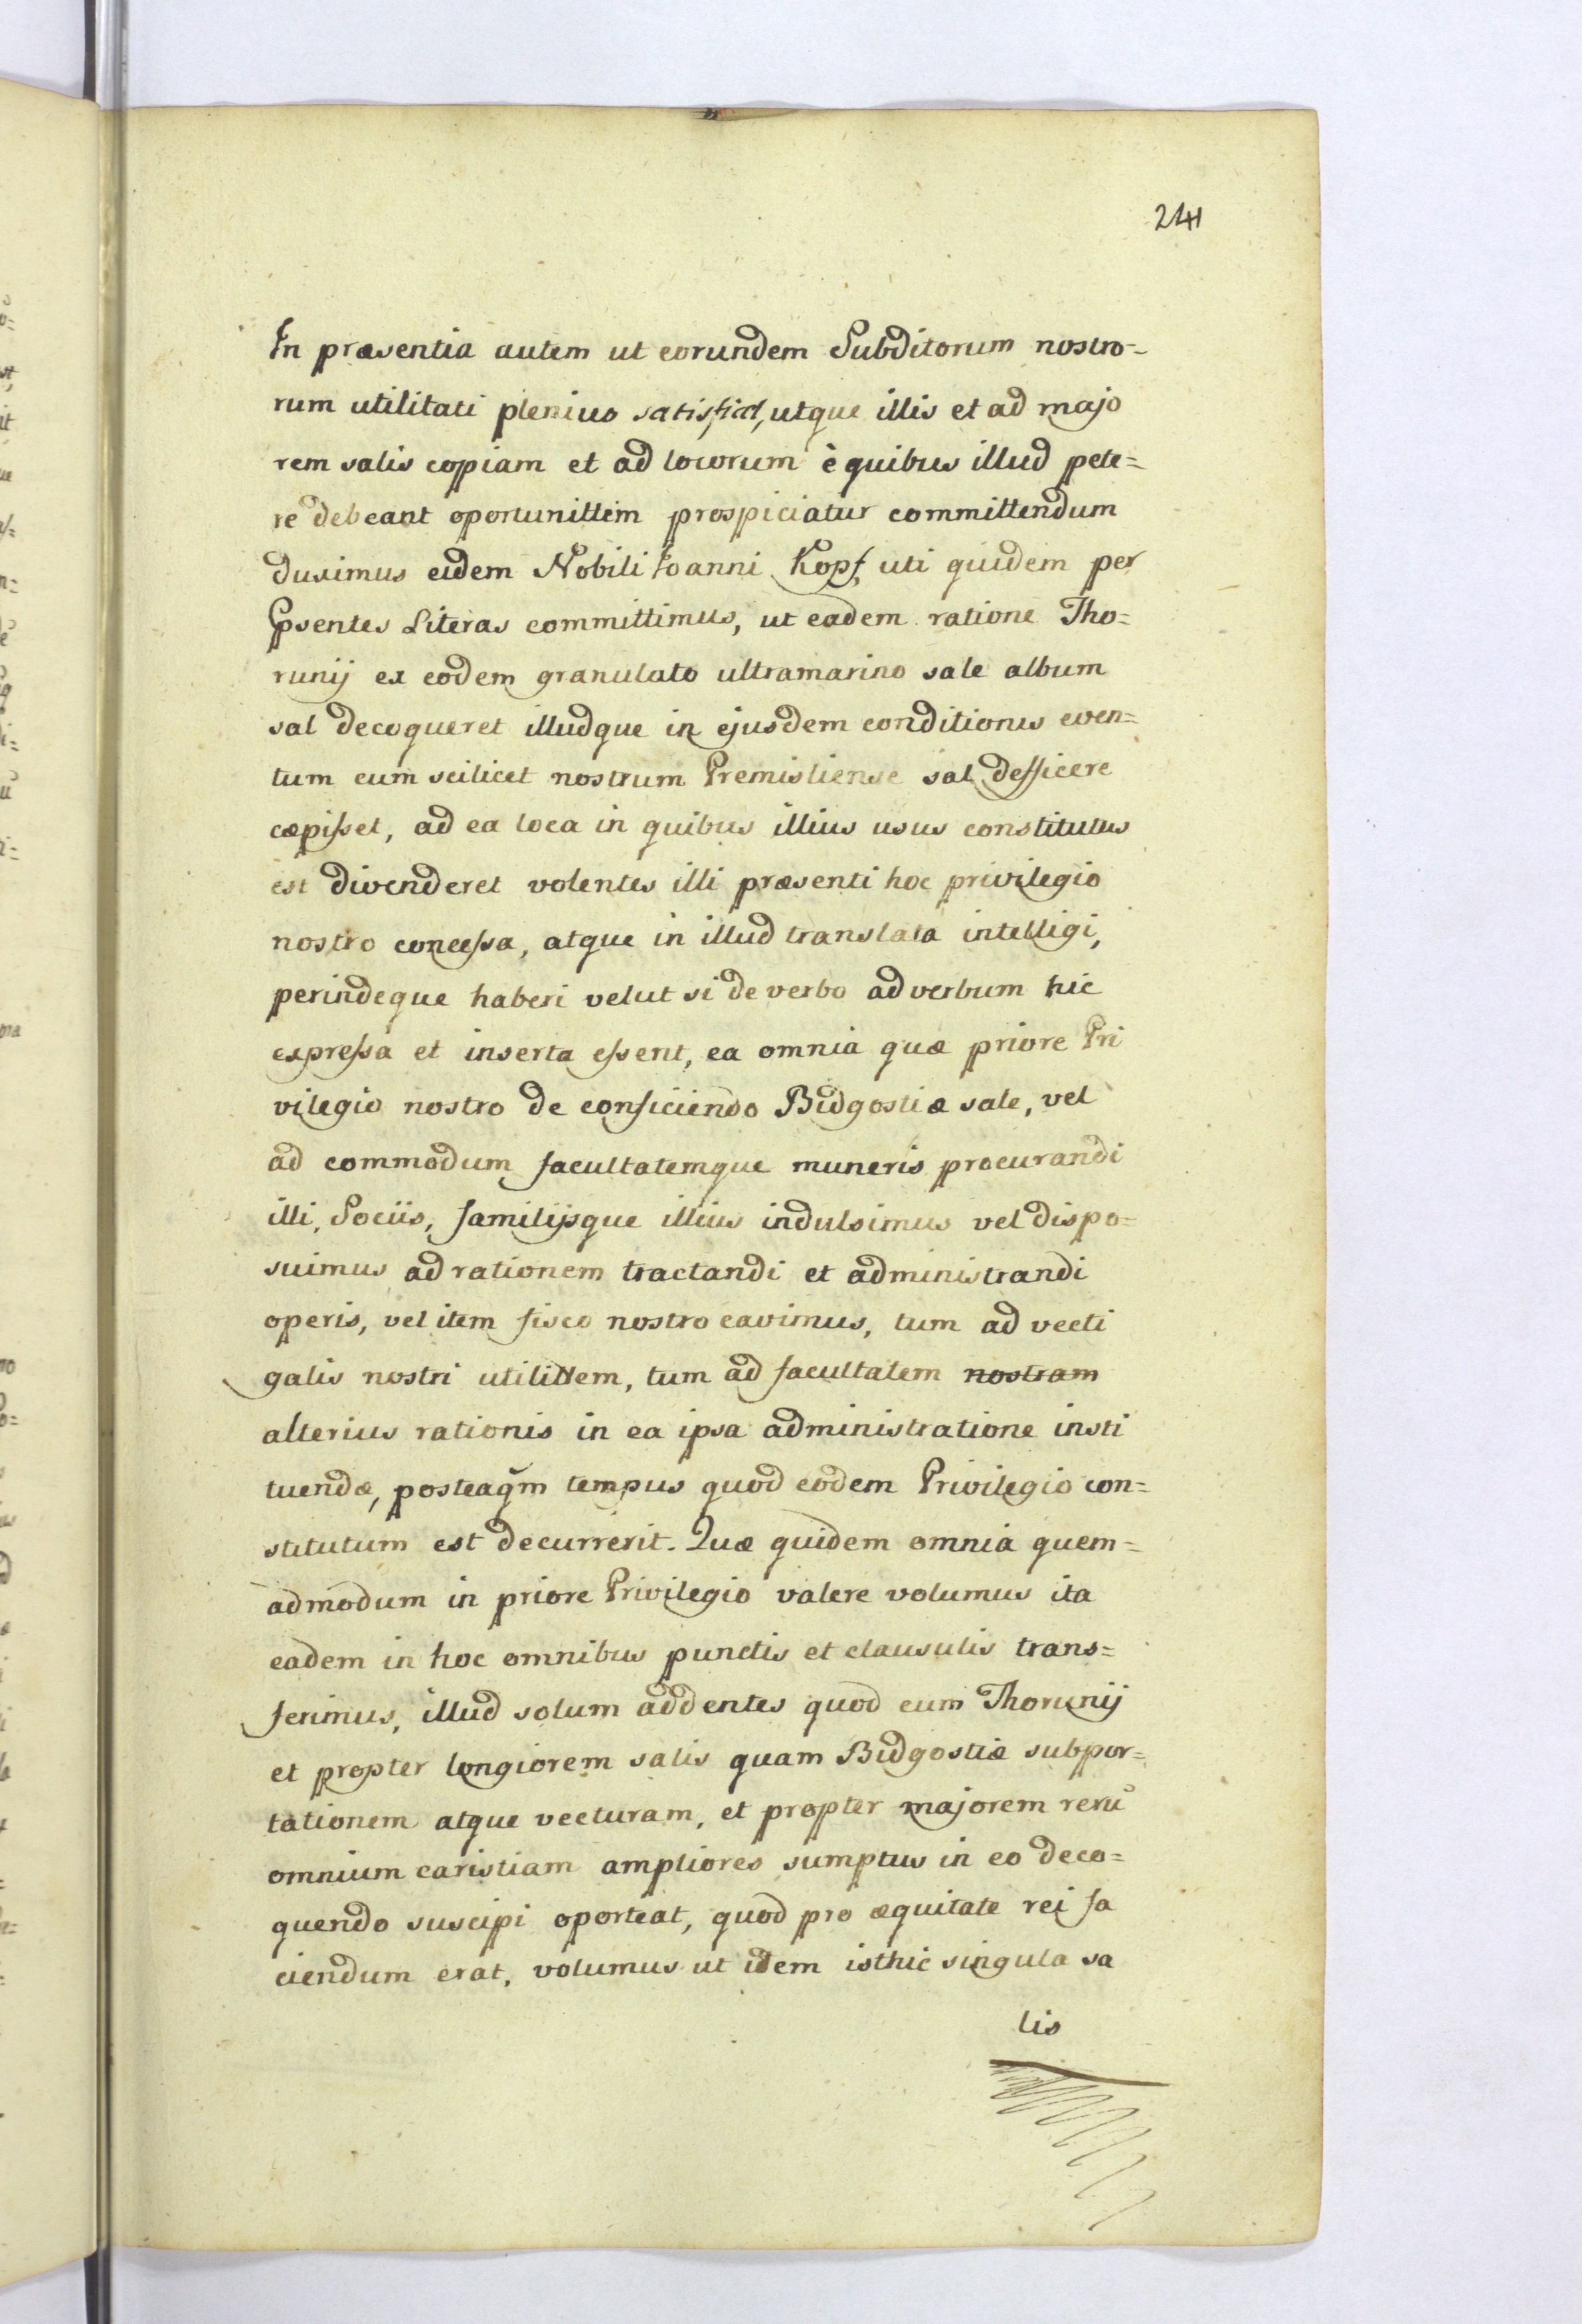 241
In præsentia autem ut eorundem Subditorum nostro-
rum utilitati plenius satisfiat, utque illis et ad majo
rem salis copiam et ad locorum è quibus illud pete=
re debeant oportunittem prospiciatur committendum
duximus eidem Nobili Ioanni Kopf, uti quidem per
Ppsentes Literas committimus, ut eadem ratione Tho=
runij ex eodem granulato ultramarino sale album
sal decoqueret illudque in ejusdem conditionis even=
tum cum scilicet nostrum Premisliense sal defficere
cæpisset, ad ea loca in quibus illius usus constitutus
est divenderet volentes illi præsenti hoc privilegio
nostro concessa, atque in illud translata intelligi,
perindeque haberi velut si de verbo ad verbum hic
expressa et inserta essent, ea omnia quæ priore Pri
vilegio nostro de conficiendo Bidgostiæ sale, vel
ad commodum facultatemque muneris procurandi
illi, Sociis, familijsque illius indulsimus vel dispo=
suimus ad rationem tractandi et administrandi
operis, vel item fisco nostro cavimus, tum ad vecti
galis nostri utilittem, tum ad facultatem nostram
alterius rationis in ea ipsa administratione insti
tuendæ, posteaq̃m tempus quod eodem Privilegio con=
stitutum est decurrerit. Quæ quidem omnia quem=
admodum in priore Privilegio valere volumus ita
eadem in hoc omnibus punctis et clausulis trans=
ferimus, illud solum addentes quod cum Thorunij
et propter longiorem salis quam Bidgostiæ subpor=
tationem atque vecturam, et propter majorem rerũ
omnium caristiam ampliores sumptus in eo deco=
quendo suscipi oporteat, quod pro æquitate rei fa
ciendum erat, volumus ut idem isthic singula sa
lis